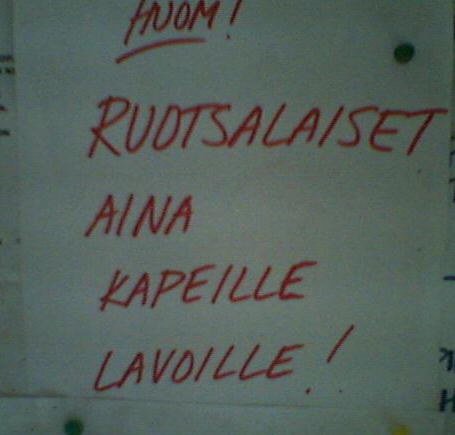 HUOM!
RUOTSALAISET
AINA
KAPEILLE
LAVOILLE!